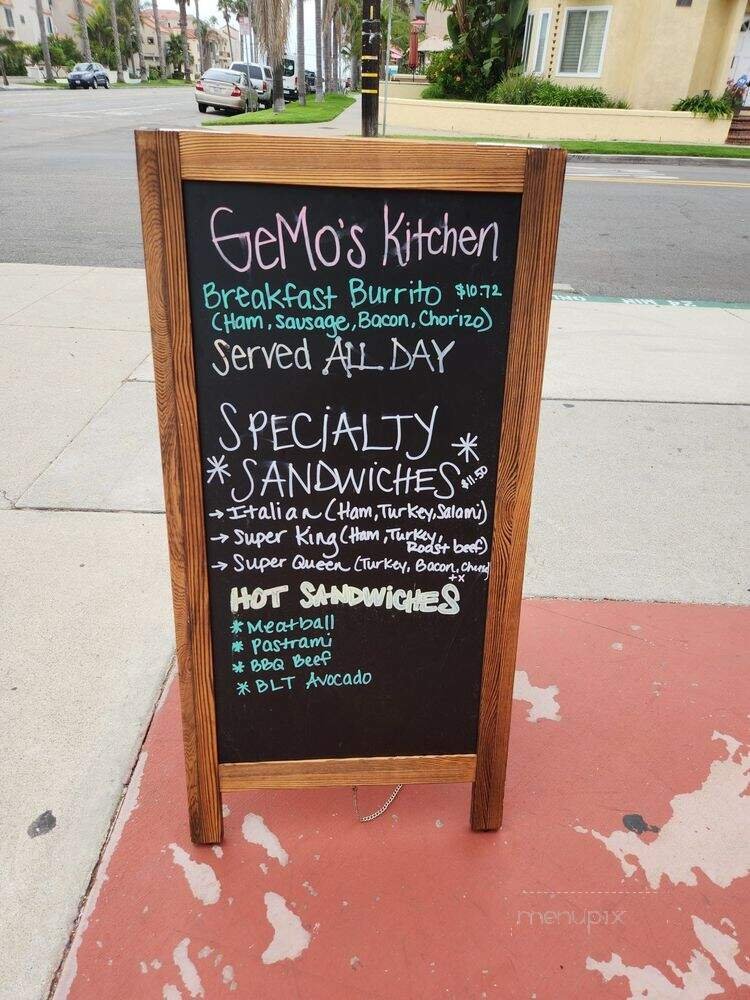 GeMo's Kitchen
Breakfast Burrito $10.72
(Ham, Sausage, Bacon, Chorizo)
Served ALL DAY
SPECIALTY
* SANDWICHES * $11.50
→ Italian (Ham, Turkey, Salami)
→ Super King (Ham, Turkey, Roast beef)
→ Super Queen (Turkey, Bacon,
+x
HOT SANDWICHES
* Meatball
* Pastrami
* BBQ Beef
* BLT Avocado
menupix